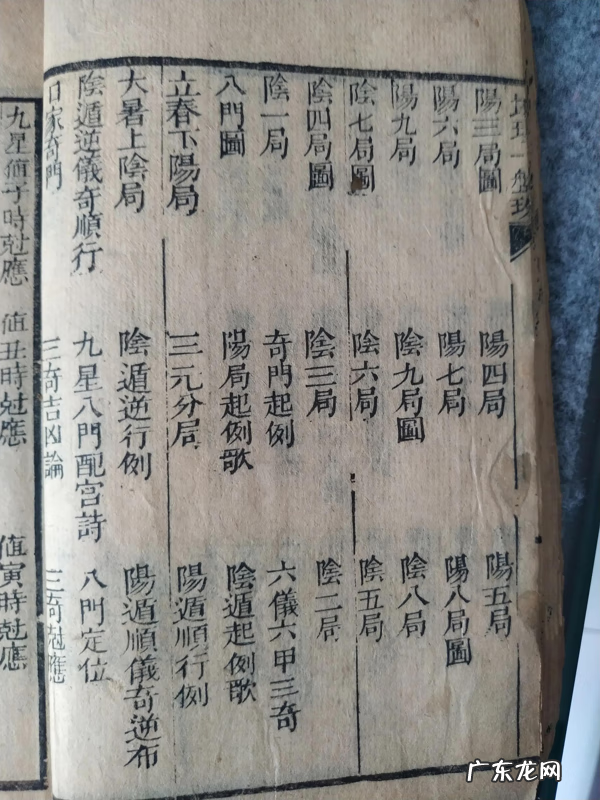 陽三局圖 陽四局 陽五局
陽六局 陽七局 陽八局圖
陽九局 陰九局圖 陰八局
陰七局圖 陰六局 陰五局
陰四局圖 陰三局 陰二局
陰一局 奇門起例 六儀六甲三奇
八門圖 陽局起例歌 陰遁起例歌
立春下陽局 三元分局 陽遁順行例
大暑上陰局 陰遁逆行例 陽遁順儀奇逆布
陰遁逆儀奇順行 九星八門配宮詩 八門定位
日家奇門 三奇吉凶論 三奇尅應
九星值子時尅應 值丑時尅應 值寅時尅應
广东龙网